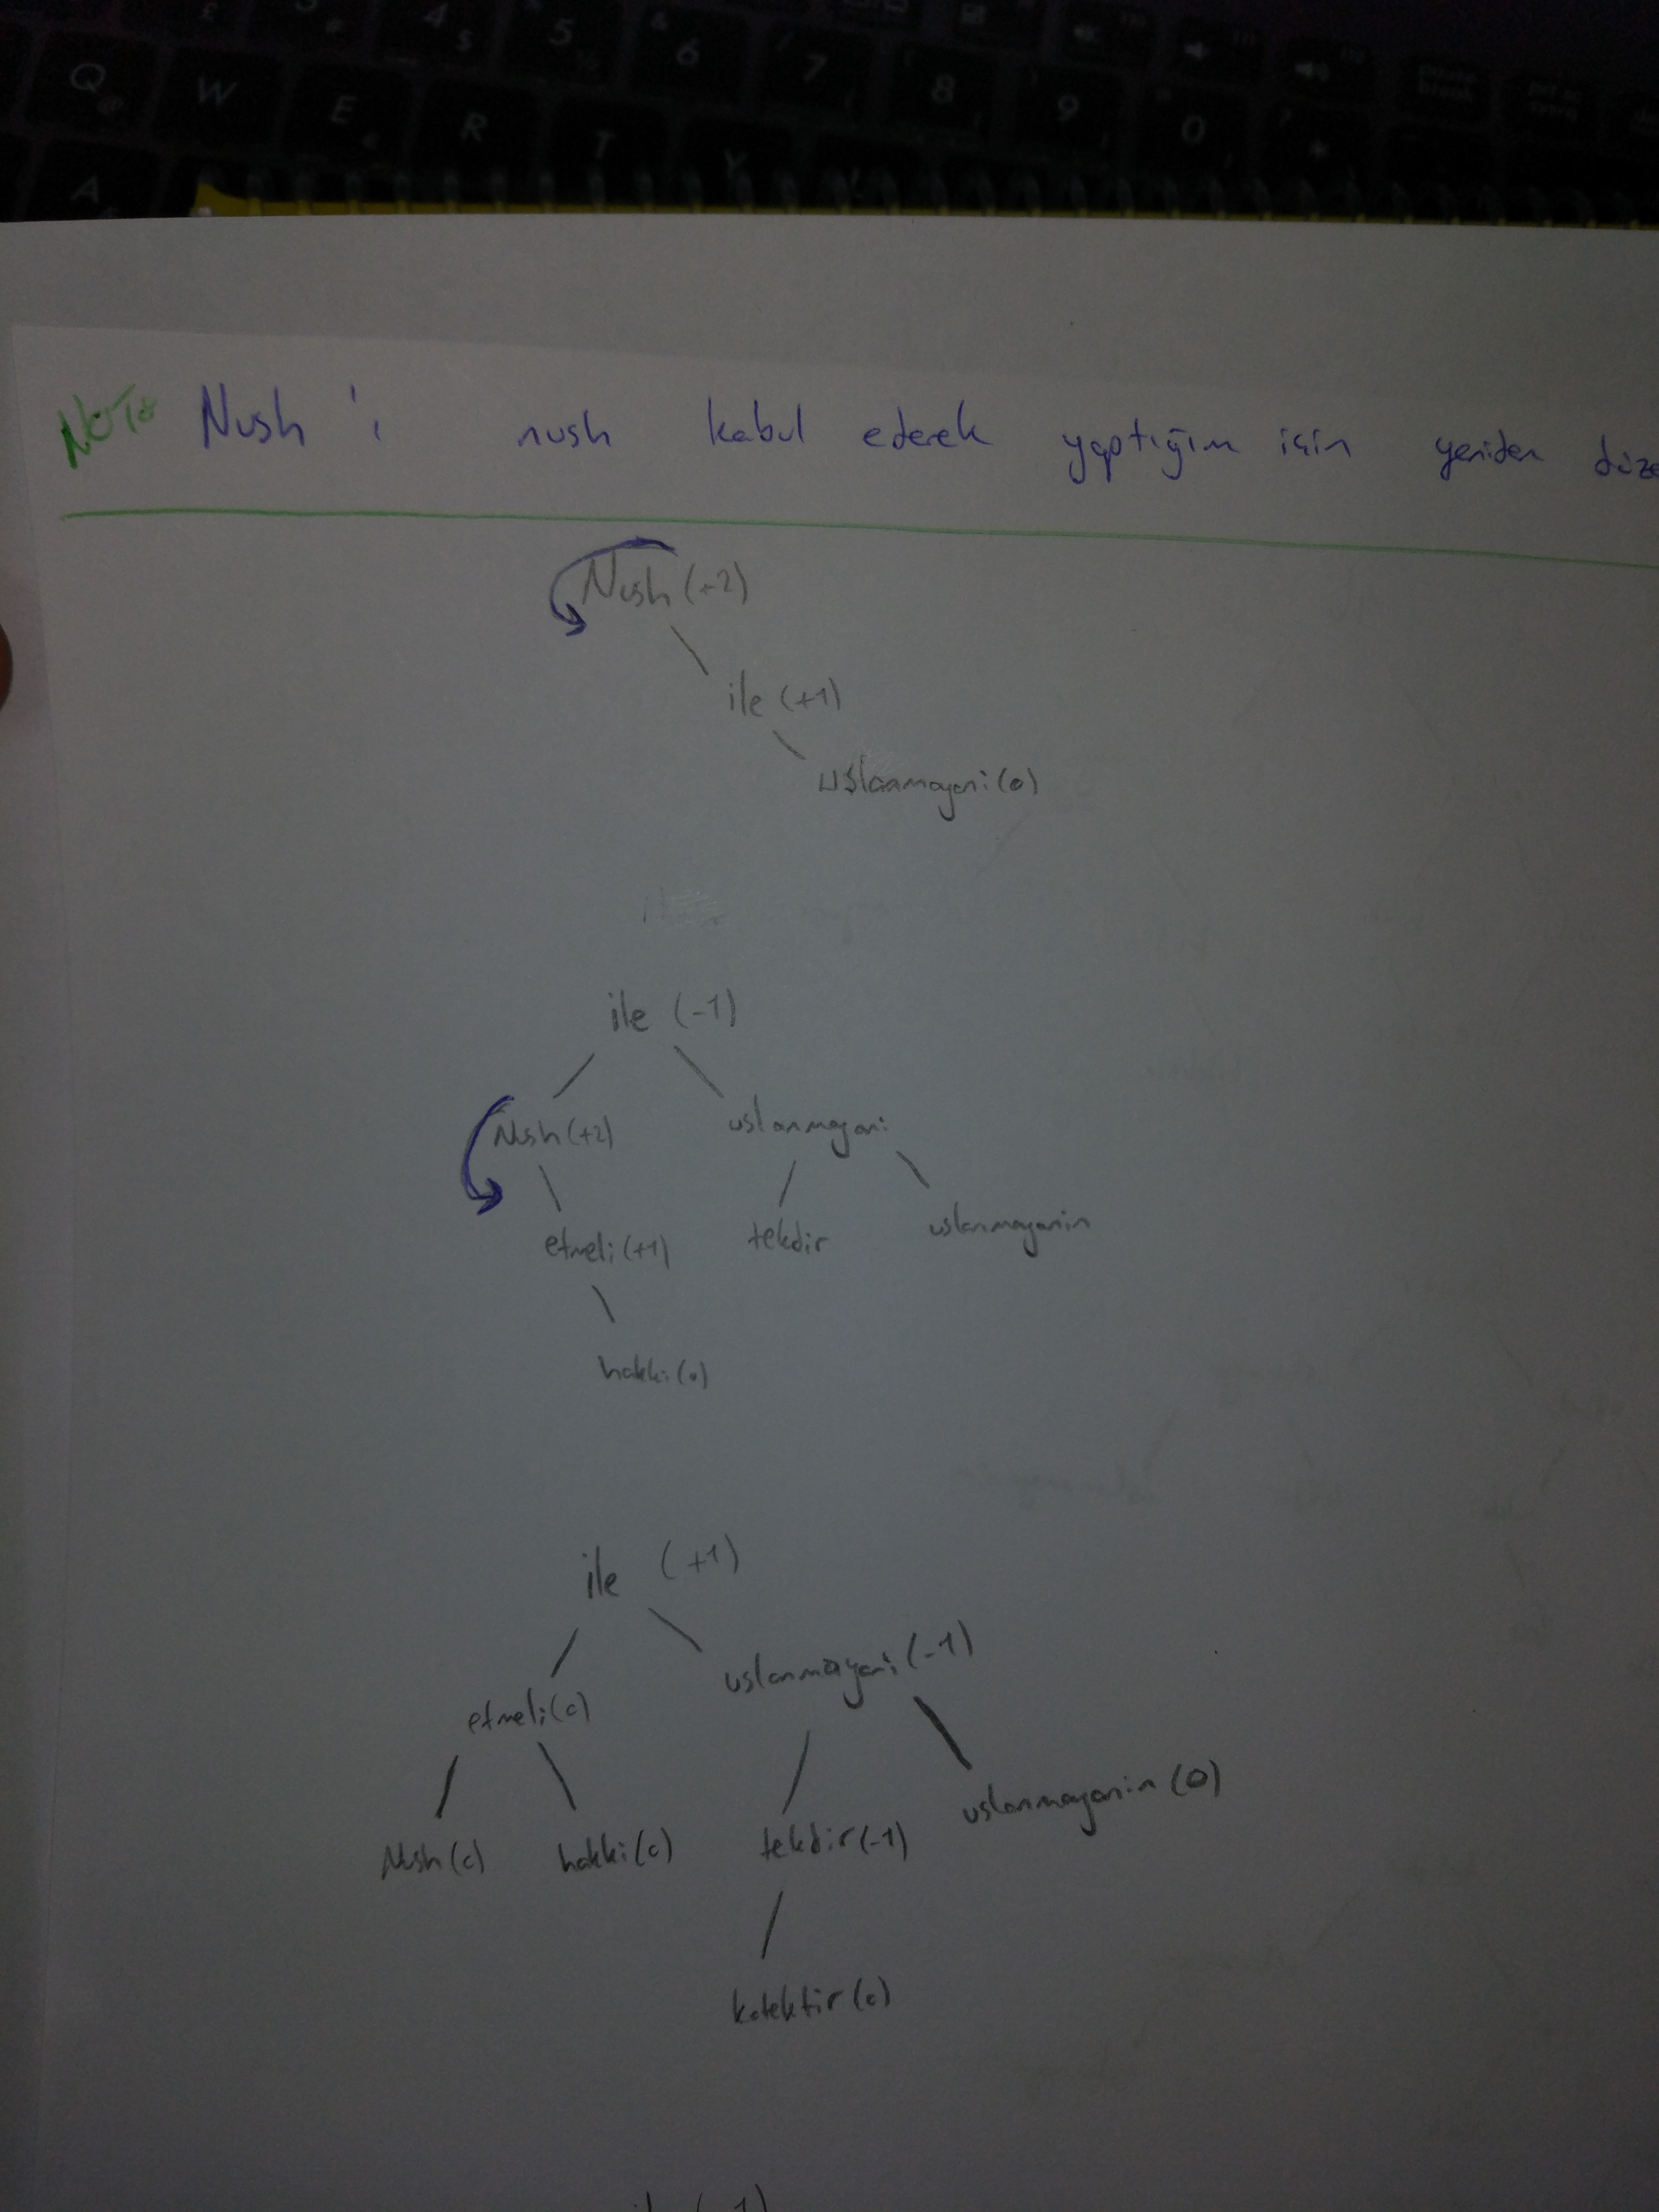 £ $ 4 5 6 7 8 9 0
Q W E R T Y
A
NOT: Nush 'ı nush kabul ederek yaptığım için yeniden düze
Nush (+2)
ile (+1)
uslanmayani (0)
ile (-1)
Nush (+2) uslanmayani
etmeli (+1) tekdir uslanmayanin
hakki (0)
ile (+1)
etmeli (0) uslanmayani (-1)
Nush (0) hakki (0) tekdir (-1) uslanmayanin (0)
kotektir (0)
ile (-1)